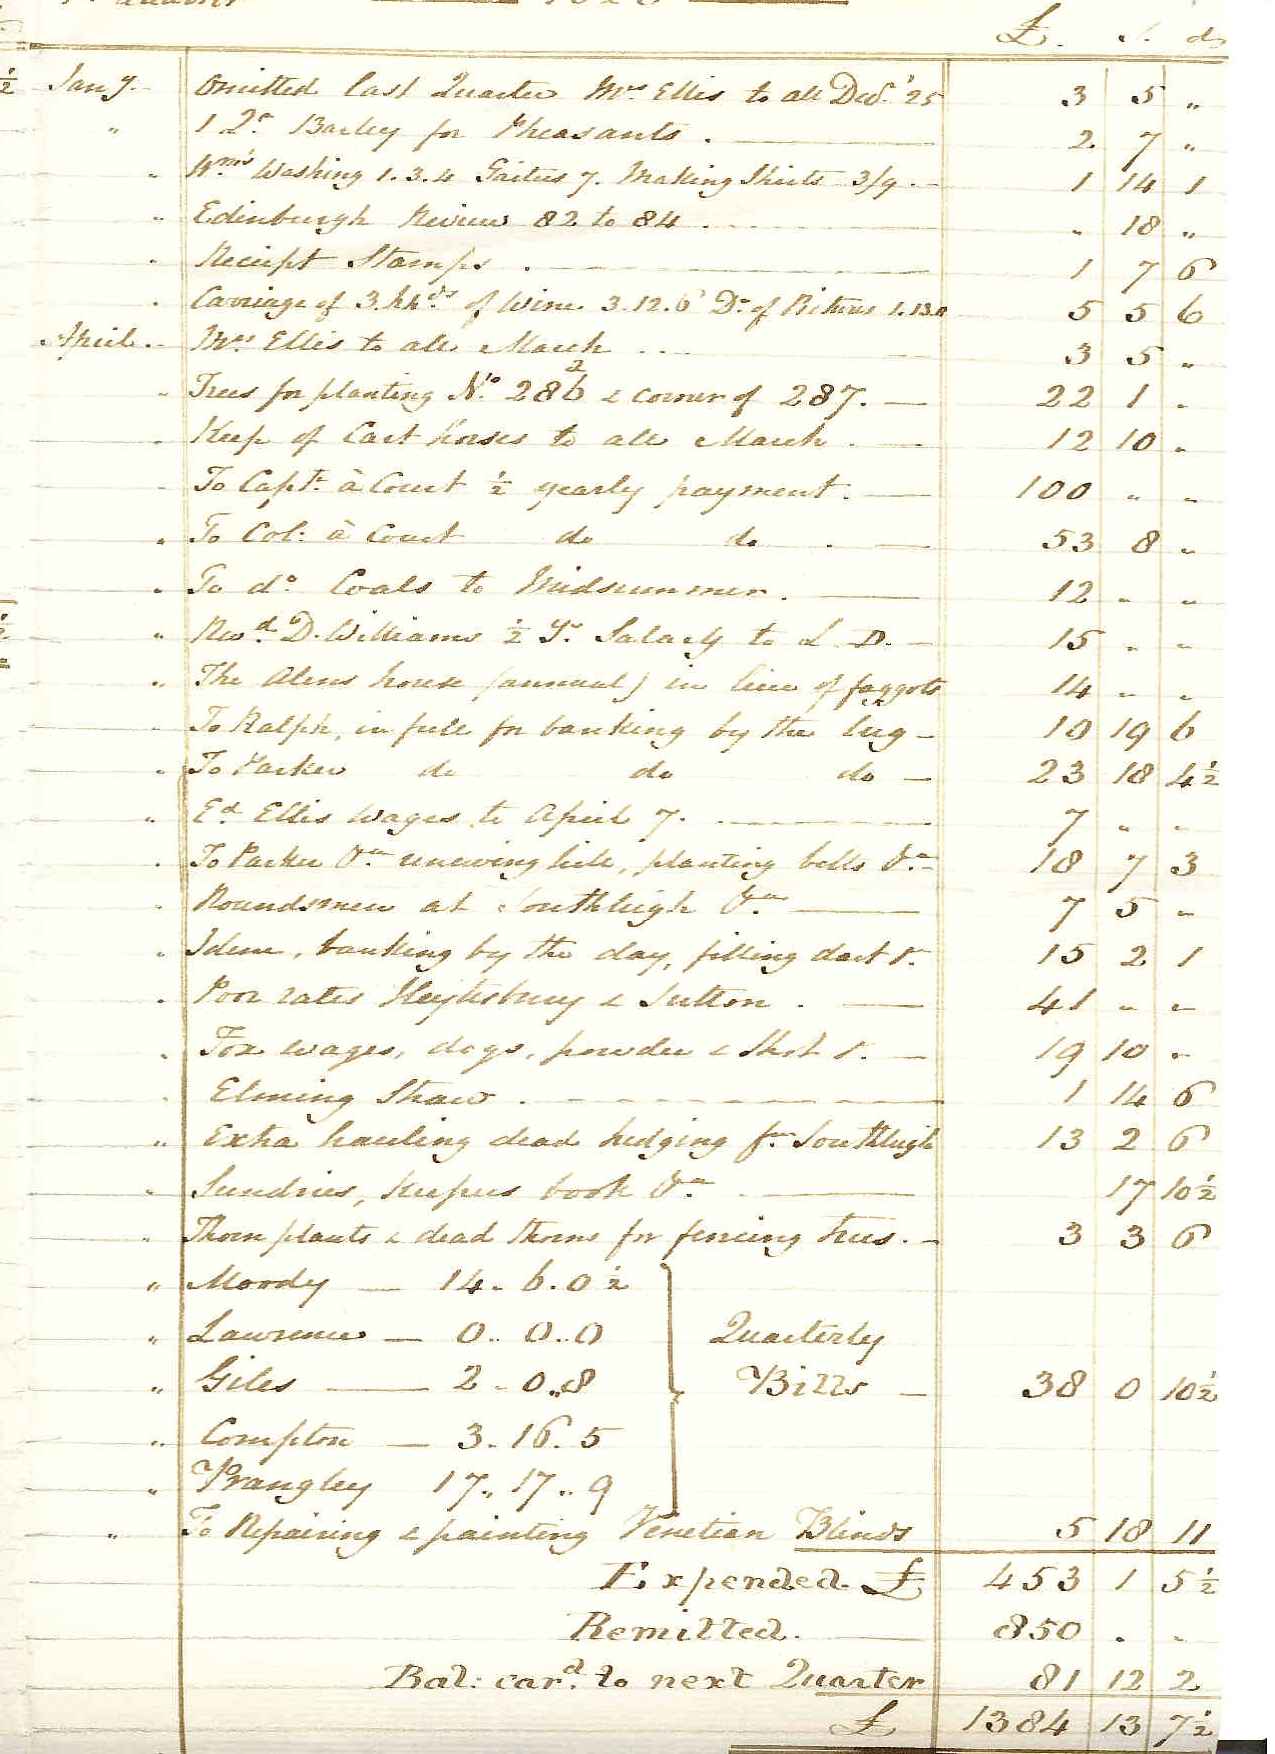 £. s. d
½ Jany. Omitted last Quarter Mrs Ellis to all Decr. '25 3 5 "
" 1 Qr. Barley for Pheasants . 2 7 "
" Wms Washing 1.3.4 Gaiters 7. Making Shirts 3/9 . 1 14 1
" Edinburgh Review 82 to 84 . " 18 "
" Receipt Stamps . 1 7 6
" Carriage of 3. hhds of Wine 3.12.6 Do of Pictures 1.13.0 5 5 6
April. Mrs Ellis to all March 3 5 "
" Trees for planting No. 286 2 & corner of 287. 22 1 "
" Keep of Cart horses to all March . 12 10 "
" To Capt. à Court ½ yearly payment. 100 " "
" To Col: à Court do do . 53 8 "
" To do. Coals to Midsummer. 12 " "
" Revd. D. Williams ½ Yr Salary to L D. 15 " "
" The Alms house (annual) in lieu of faggots 14 " "
" To Ralph, in full for banking by the lug 10 19 6
" To Parker do do do 23 18 4½
" Ed. Ellis wages to April 7. 7 " "
" To Parker &c. renewing hill, planting belts &c. 18 7 3
" Roundsmen at Southleigh &c. 7 5 "
" Idem, banking by the day, filling dart &. 15 2 1
" Poor rates Heytesbury & Sutton . 41 " "
" Fox wages, dogs, powder & Shot &. 19 10 "
" Elming Straw . 1 14 6
" Extra hauling dead hedging fm Southleigh 13 2 6
" Sundries, keepers book &c. 17 10½
" Thorn plants & dead thorns for fencing trees. 3 3 6
" Moody 14. 6. 0½
" Lawrence 0. 0. 0 Quarterly
" Giles 2. 0. 8 Bills 38 0 10½
" Compton 3. 16. 5
" Prangley 17. 17. 9
" To Repairing & painting Venetian Blinds 5 18 11
Expended. £ 453 1 5½
Remitted. 850 . "
Bal: card. to next Quarter 81 12 2
£ 1384 13 7½